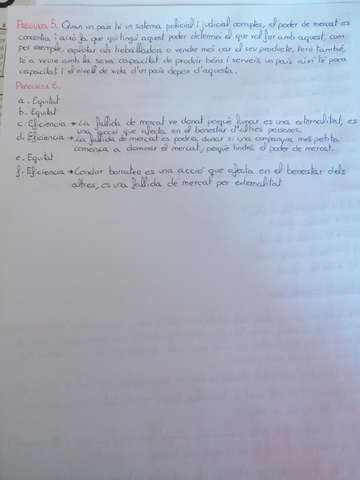 PREGUNTA 5. Quan un país té un sistema policial i judicial complex, el poder de mercat es
concentra i això fa que qui tingui aquest poder determini el que vol fer amb aquest, com
per exemple, explotar als treballadors o vendre més car el seu producte. Però també,
té a veure amb la seva capacitat de produir béns i serveis, un país així té poca
capacitat i el nivell de vida d'un país depèn d'aquesta.
PREGUNTA 6.
a. Equitat
b. Equitat
c. Eficiència → La fallida de mercat ve donat perquè fumar es una externalitat; es
una acció que afecta en el benestar d'altres persones.
d. Eficiència → La fallida de mercat es podria donar si una companyia més petita
comença a dominar el mercat, perquè tindrà el poder de mercat.
e. Equitat
f. Eficiència → Conduir borratxo es una acció que afecta en el benestar dels
altres, es una fallida de mercat per externalitat.